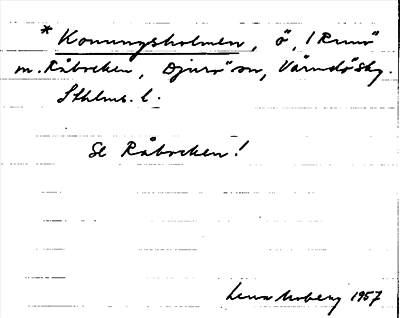 * Konungsholmen, ö, i Runö
m. Råbocken, Djurö sn, Värmdö skg.
Sthlms. l.
Se Råbocken!
Lena Moberg 1957